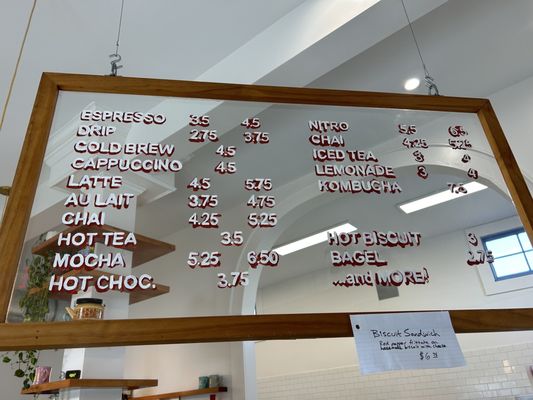 ESPRESSO 3.5 4.5
DRIP 2.75 3.75
COLD BREW 4.5
CAPPUCCINO 4.5
LATTE 4.5 5.75
AU LAIT 3.75 4.75
CHAI 4.25 5.25
HOT TEA 3.5
MOCHA 5.25 6.50
HOT CHOC. 3.75
NITRO 5.5
CHAI 4.25 5.25
ICED TEA 3 4
LEMONADE 3
KOMBUCHA 7.5
HOT BISCUIT 3
BAGEL 2.75
...and MORE!
Biscuit Sandwich
Red pepper frittata on
homemade biscuit with cheese
$6